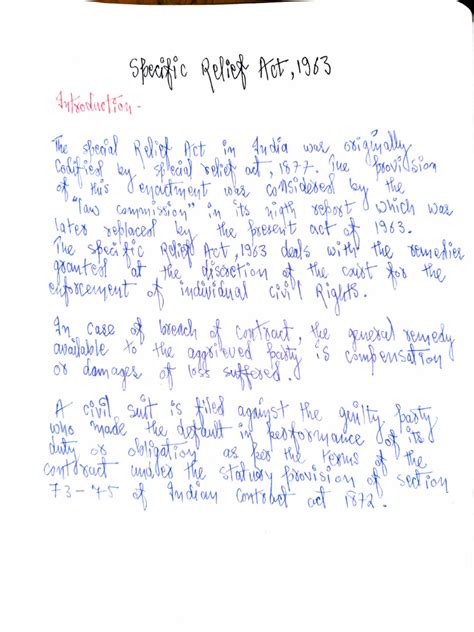 Specific Relief Act, 1963
Introduction -
The special Relief Act in India was originally
Codified by special relief act, 1877. The provision
of this enactment was considered by the
"law commission" in its nigth report which was
later replaced by the present act of 1963.
The specific Relief Act, 1963 deals with the remedies
granted at the discretion of the caurt for the
enforcement of individual civil Rights.
In case of breach of contract, the general remedy
available to the aggrieved party is compensation
or damages of loss suffered.
A civil suit is filed against the guilty party
who made the default in performance of its
duty or obligation as per the terms of the
contract under the statuary provision of section
73-75 of Indian Contract act 1872.